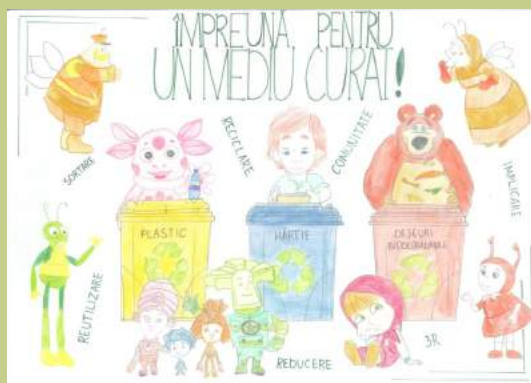 ÎMPREUNĂ PENTRU
UN MEDIU CURAT!
SORTARE
RECICLARE
COMUNITATE
IMPLICARE
PLASTIC
HÂRTIE
DEȘEURI
REUTILIZARE
REDUCERE
3R